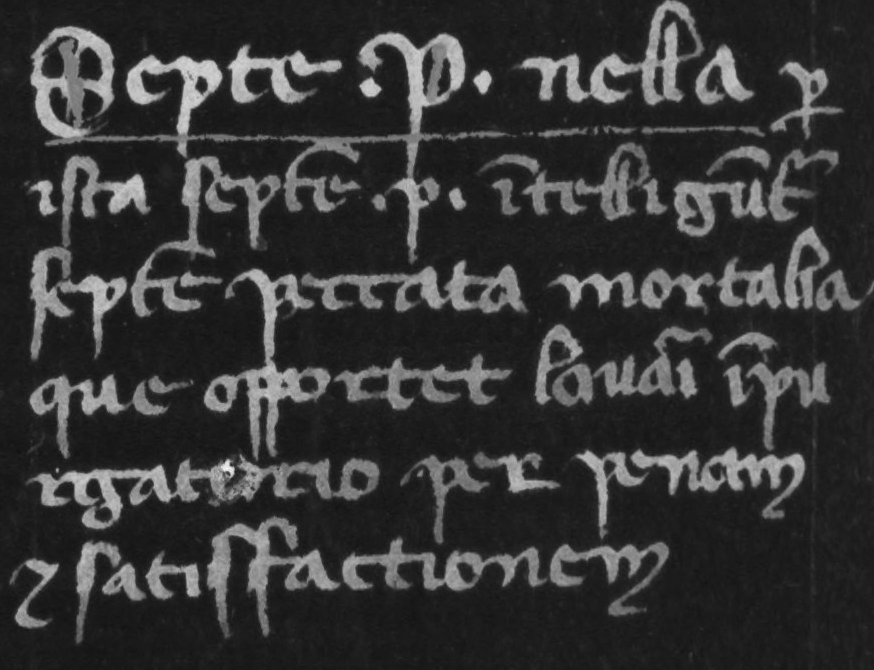 Septe .P. nella ꝑ
ista septē .p. ītelligūt᷑
septē peccata mortalia
que opportet lauāi īpu
rgatorio per penam
⁊ satisffactionem